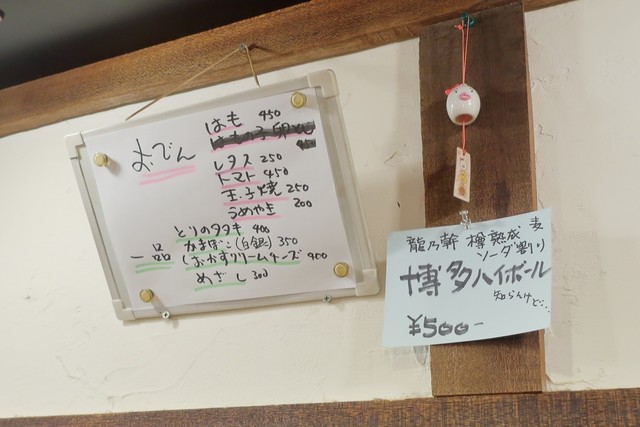 おでん
はも 450
はもの子卵とじ
レタス 250
トマト 450
玉子焼 250
うめやき 200
一品
とりのタタキ 400
かまぼこ(白銀) 350
おかずクリームチーズ 400
めざし 300
龍乃幹 樽熟成 麦
ソーダ割り
博多ハイボール
知らんけど…
¥500-